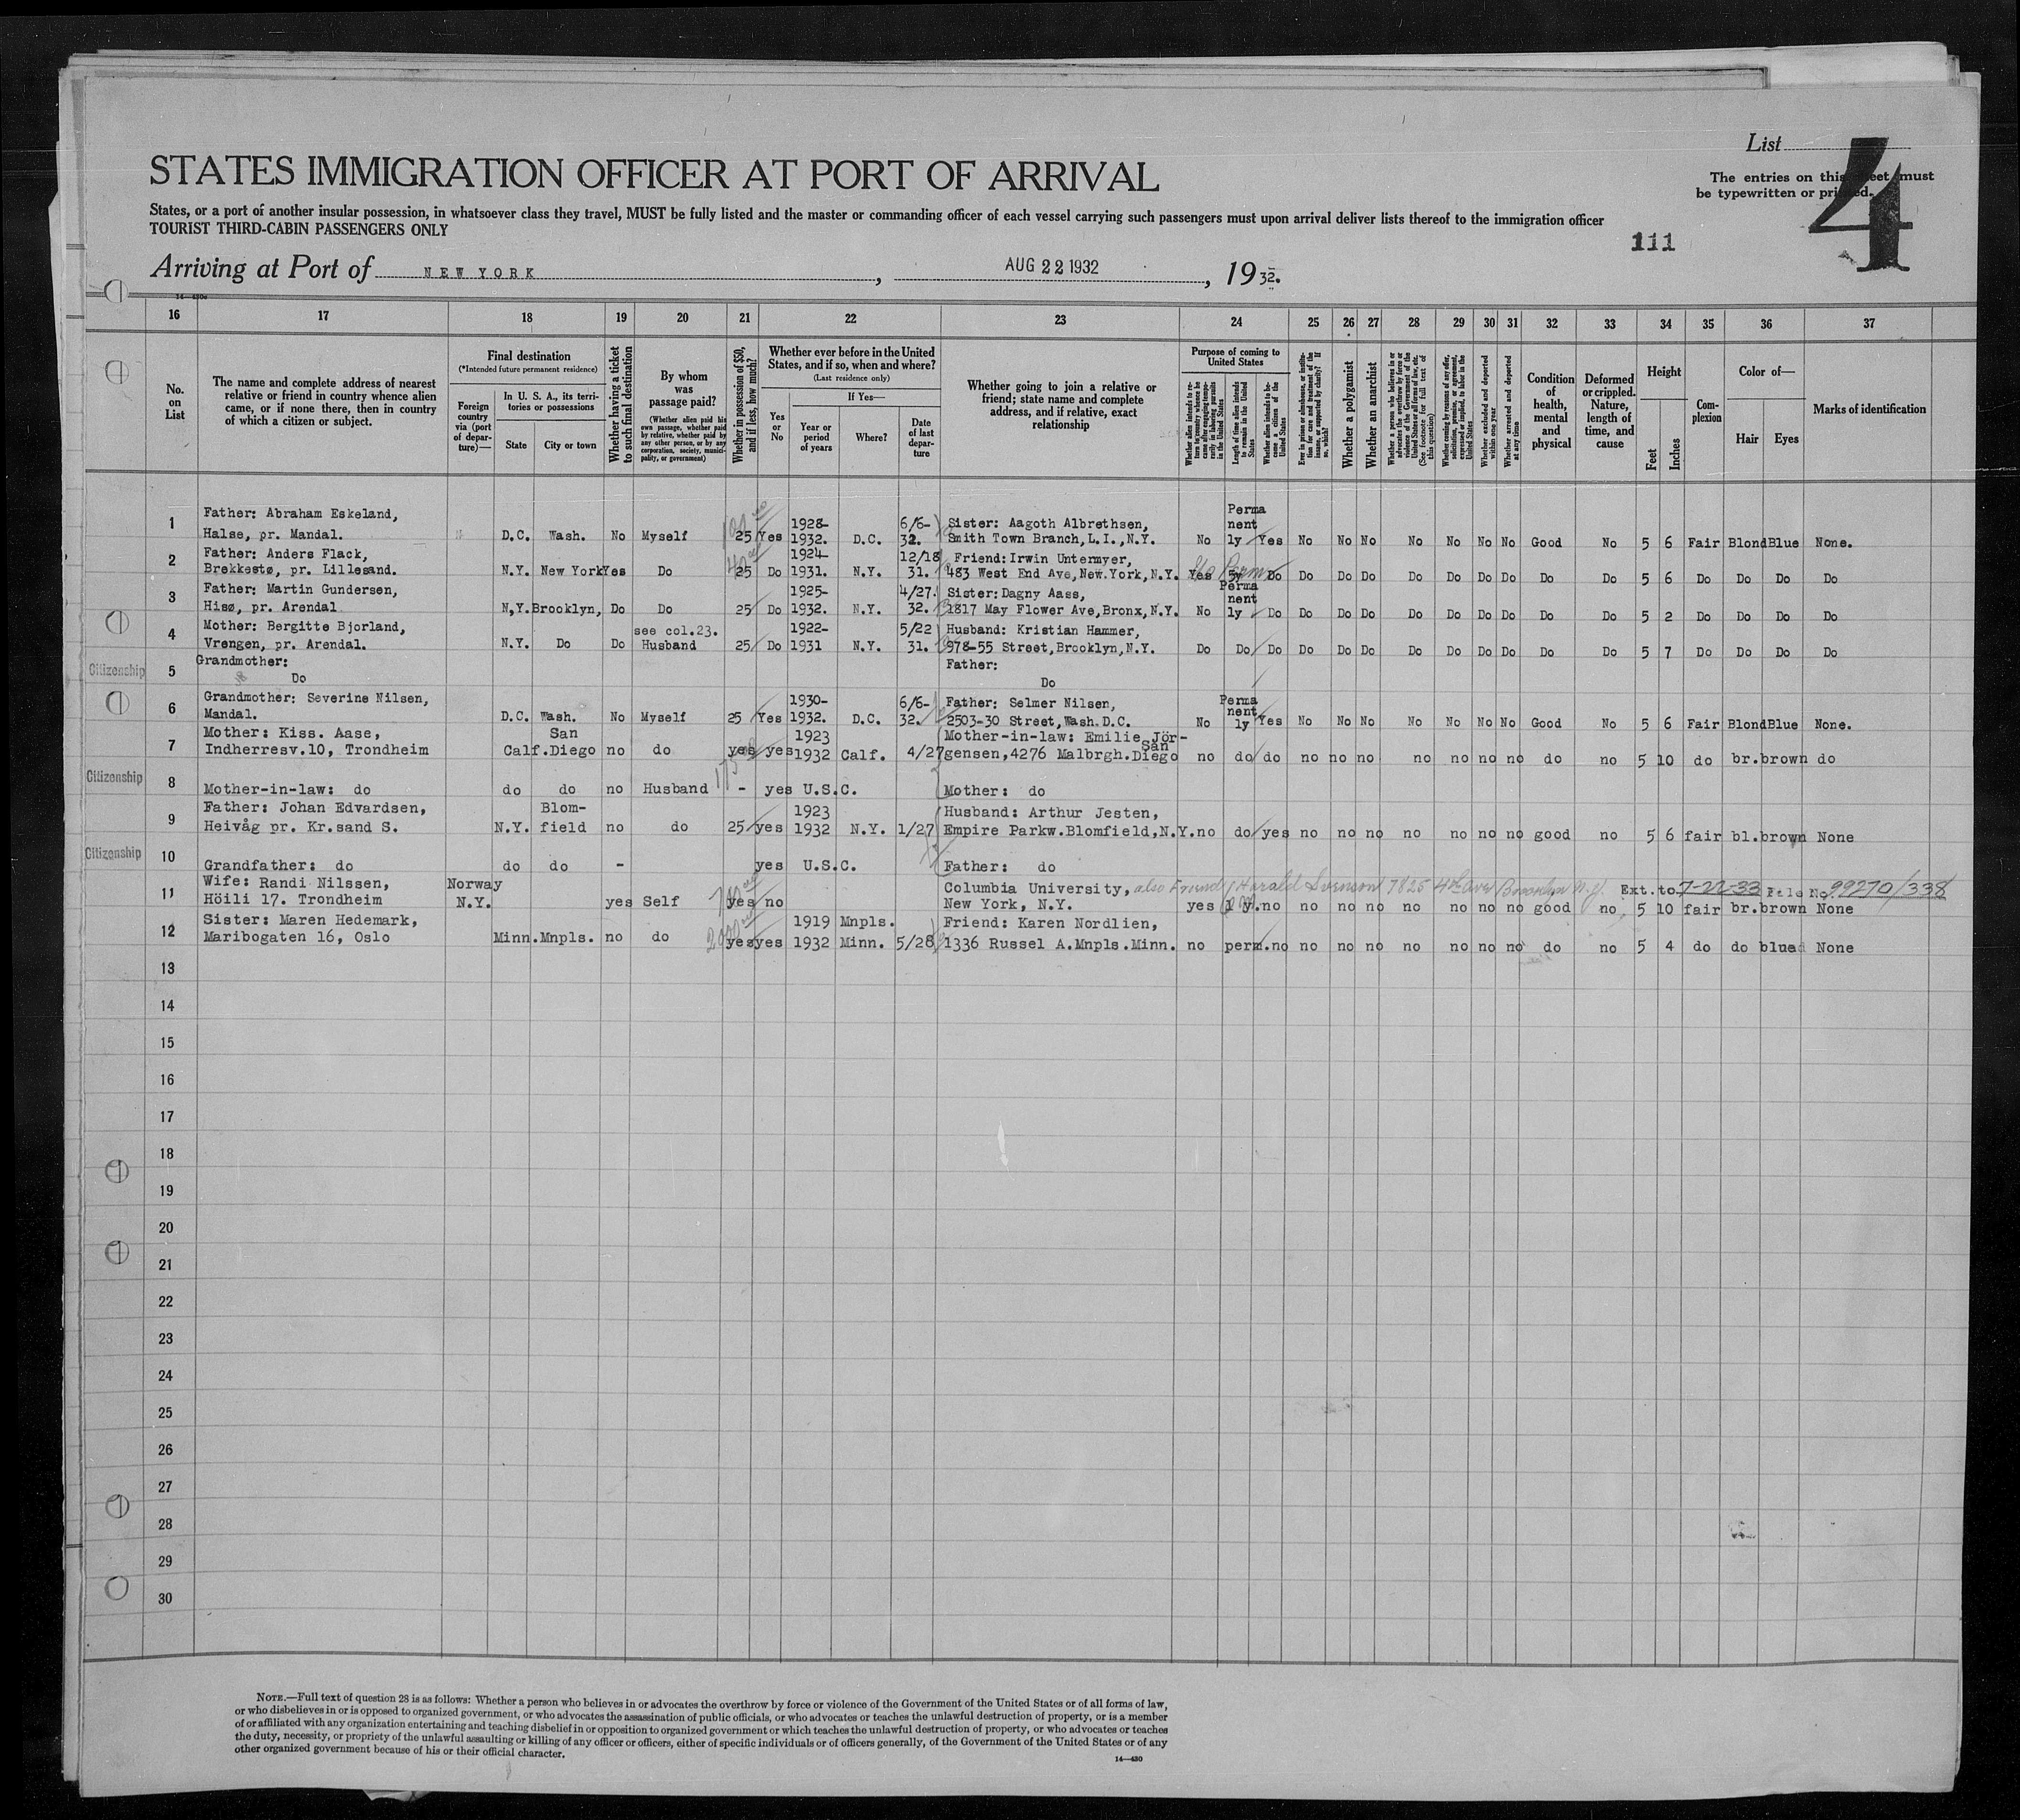 List
4
The entries on this sheet must
be typewritten or printed.
STATES IMMIGRATION OFFICER AT PORT OF ARRIVAL
States, or a port of another insular possession, in whatsoever class they travel, MUST be fully listed and the master or commanding officer of each vessel carrying such passengers must upon arrival deliver lists thereof to the immigration officer
TOURIST THIRD-CABIN PASSENGERS ONLY
111
Arriving at Port of NEW YORK, AUG 22 1932, 1932.
16 17 18 19 20 21 22 23 24 25 26 27 28 29 30 31 32 33 34 35 36 37
No. on List
The name and complete address of nearest relative or friend in country whence alien came, or if none there, then in country of which a citizen or subject.
Final destination
(*Intended future permanent residence)
Foreign country via (port of departure)—
In U. S. A., its territories or possessions
State
City or town
Whether having a ticket to such final destination
By whom was passage paid?
(Whether alien paid his own passage, whether paid by relative, whether paid by any other person, or by any corporation, society, municipality, or government)
Whether in possession of $50, and if less, how much?
Whether ever before in the United States, and if so, when and where?
(Last residence only)
Yes or No
If Yes—
Year or period of years
Where?
Date of last departure
Whether going to join a relative or friend; state name and complete address, and if relative, exact relationship
Purpose of coming to United States
Length of time alien intends to remain in the United States
Whether alien intends to become a citizen of the United States
Whether a polygamist
Whether an anarchist
Whether excluded and deported within one year
Whether arrested and deported at any time
Condition of health, mental and physical
Deformed or crippled. Nature, length of time, and cause
Height
Feet
Inches
Complexion
Color of—
Hair
Eyes
Marks of identification
1 Father: Abraham Eskeland, Halse, pr. Mandal. D.C. Wash. No Myself 25 Yes 1928-1932. D.C. 6/6-32. Sister: Aagoth Albrethsen, Smith Town Branch, L.I., N.Y. No Permanently Yes No No No No No No No Good No 5 6 Fair Blond Blue None.
2 Father: Anders Flack, Brekkestø, pr. Lillesand. N.Y. New York Yes Do 25 Do 1924-1931. N.Y. 12/18 31. Friend: Irwin Untermyer, 483 West End Ave, New.York, N.Y. Yes 5y Do Do Do Do Do Do Do Do Do Do 5 6 Do Do Do Do
3 Father: Martin Gundersen, Hisø, pr. Arendal N,Y. Brooklyn, Do Do 25 Do 1925-1932. N.Y. 4/27. 32. Sister: Dagny Aass, 1817 May Flower Ave, Bronx, N.Y. No Permanently Do Do Do Do Do Do Do Do Do Do 5 2 Do Do Do Do
4 Mother: Bergitte Bjorland, Vrengen, pr. Arendal. N.Y. Do Do see col.23. Husband 25 Do 1922-1931 N.Y. 5/22 31. Husband: Kristian Hammer, 978-55 Street, Brooklyn, N.Y. Do Do Do Do Do Do Do Do Do Do Do Do 5 7 Do Do Do Do
Citizenship 5 Grandmother: Do Father: Do
6 Grandmother: Severine Nilsen, Mandal. D.C. Wash. No Myself 25 Yes 1930-1932. D.C. 6/6-32. Father: Selmer Nilsen, 2503-30 Street, Wash. D.C. No Permanently Yes No No No No No No No Good No 5 6 Fair Blond Blue None.
7 Mother: Kiss. Aase, Indherresv.10, Trondheim Calf. San Diego no do yes yes 1923 1932 Calf. 4/27 Mother-in-law: Emilie Jörgensen, 4276 Malbrgh. San Diego no do do no no no no no no no do no 5 10 do br. brown do
Citizenship 8 Mother-in-law: do do do no Husband - yes U.S.C. Mother: do
9 Father: Johan Edvardsen, Heivåg pr. Kr.sand S. N.Y. Blomfield no do 25 yes 1923 1932 N.Y. 1/27 Husband: Arthur Jesten, Empire Parkw. Blomfield, N.Y. no do yes no no no no no no no good no 5 6 fair bl. brown None
Citizenship 10 Grandfather: do do do - yes U.S.C. Father: do
11 Wife: Randi Nilssen, Höili 17. Trondheim Norway N.Y. yes Self yes no Columbia University, New York, N.Y. also Friend Harald Svenson 7825 4th Ave Brooklyn N.Y. Ext. to 7-22-33 File No. 99270/338 yes 1 y. no no no no no no no no good no 5 10 fair br. brown None
12 Sister: Maren Hedemark, Maribogaten 16, Oslo Minn. Mnpls. no do yes yes 1919 1932 Mnpls. Minn. 5/28 Friend: Karen Nordlien, 1336 Russel A. Mnpls. Minn. no perm. no no no no no no no no do no 5 4 do do blue None
13
14
15
16
17
18
19
20
21
22
23
24
25
26
27
28
29
30
NOTE.—Full text of question 28 is as follows: Whether a person who believes in or advocates the overthrow by force or violence of the Government of the United States or of all forms of law,
or who disbelieves in or is opposed to organized government, or who advocates the assassination of public officials, or who advocates or teaches the unlawful destruction of property, or is a member
of or affiliated with any organization entertaining and teaching disbelief in or opposition to organized government or which teaches the unlawful destruction of property, or who advocates or teaches
the duty, necessity, or propriety of the unlawful assaulting or killing of any officer or officers, either of specific individuals or of officers generally, of the Government of the United States or of any
other organized government because of his or their official character.
14—430